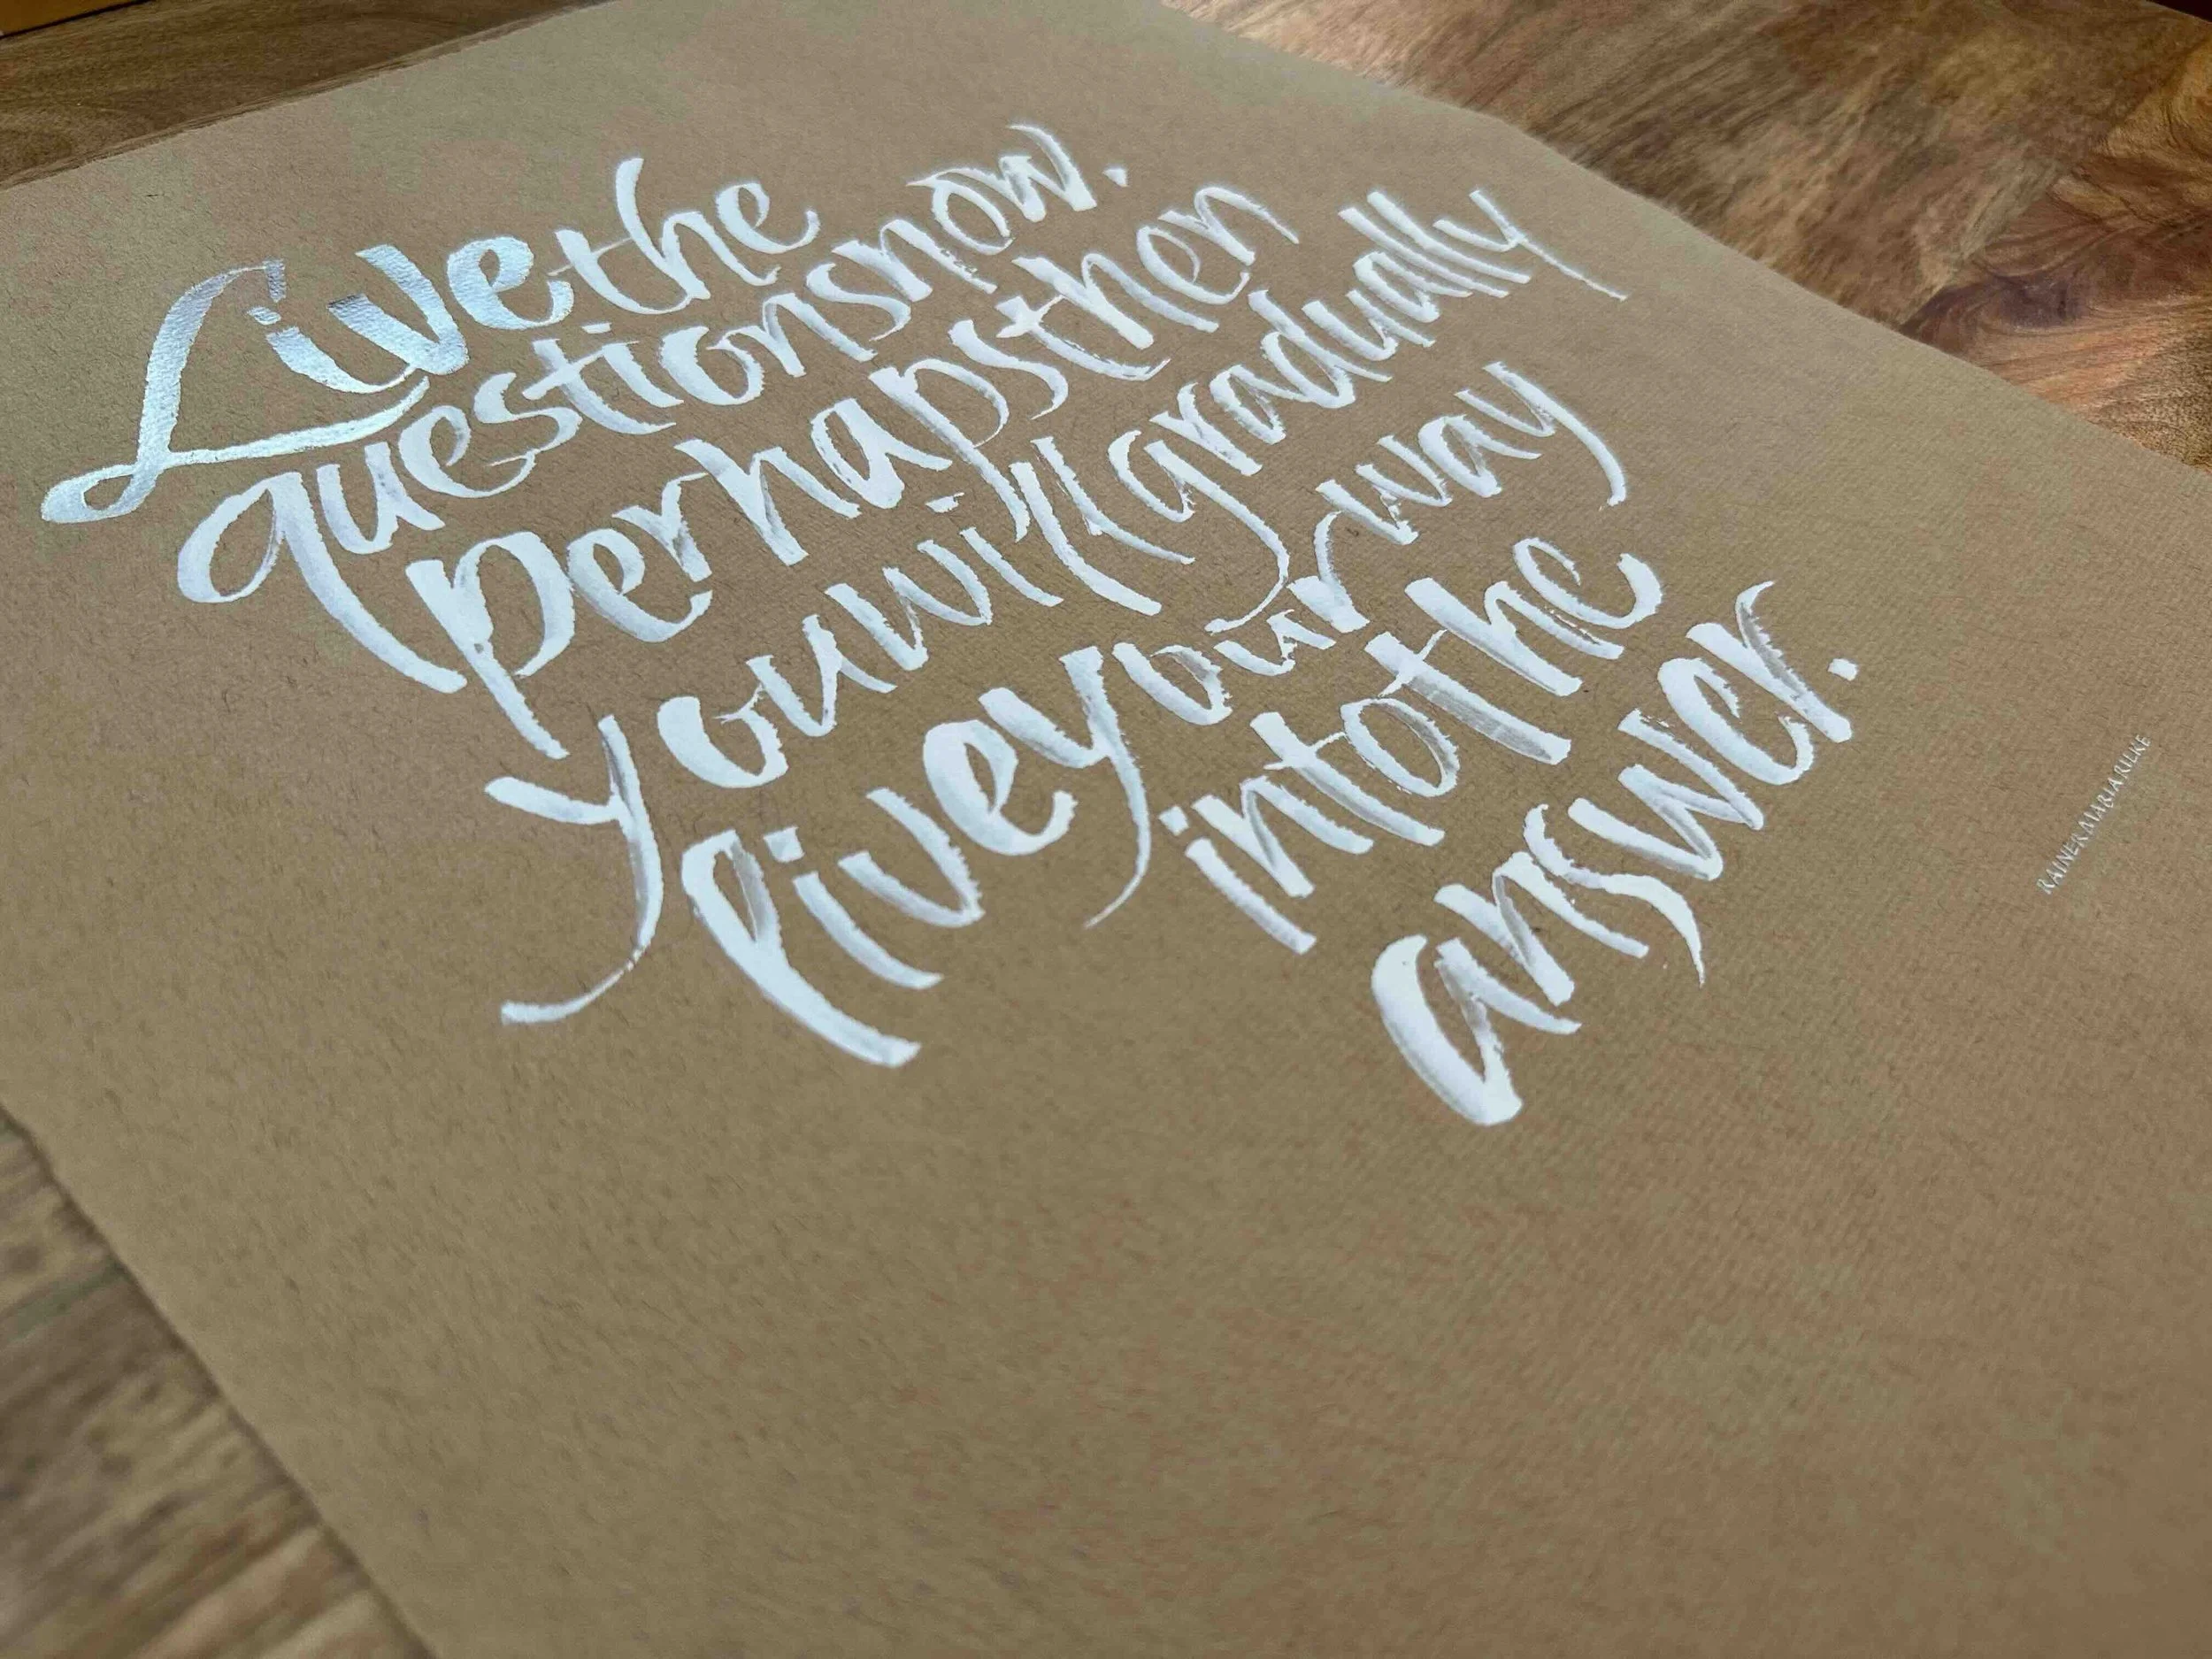 Live the
questions now.
perhaps then
you will gradually
live your way
into the
answer.
RAINER MARIA RILKE